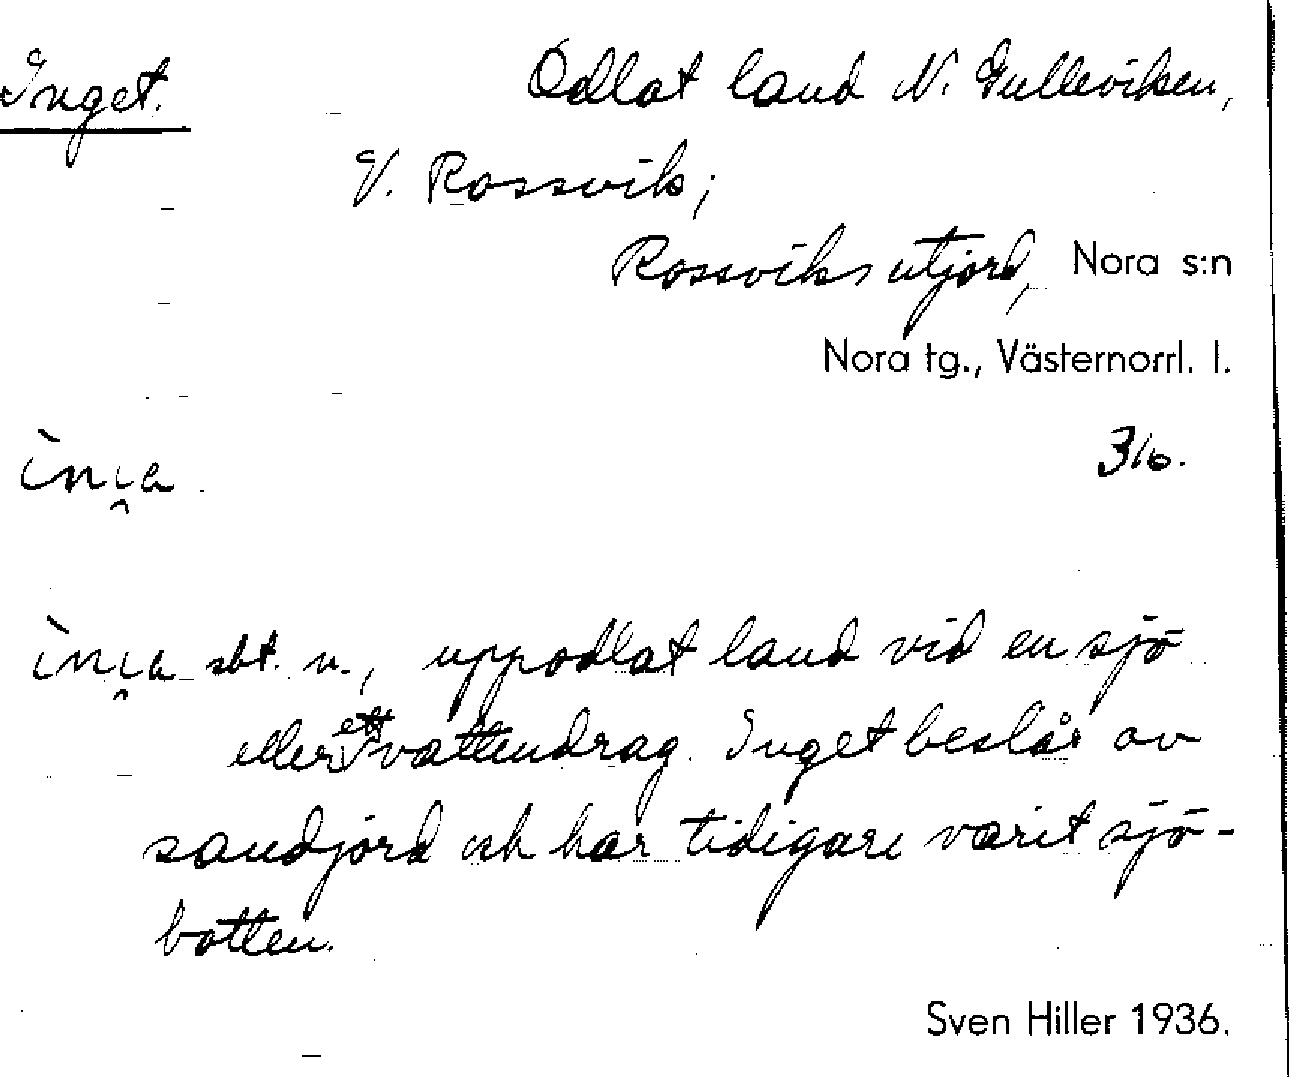 Inget. Odlat land N. Gulleviken,
V. Rossvik;
Rossviks utjord, Nora s:n
Nora tg., Västernorrl. l.
316.
sbt. n., uppodlat land vid en sjö
eller ett vattendrag. Inget består av
sandjord och har tidigare varit sjö-
botten.
Sven Hiller 1936.